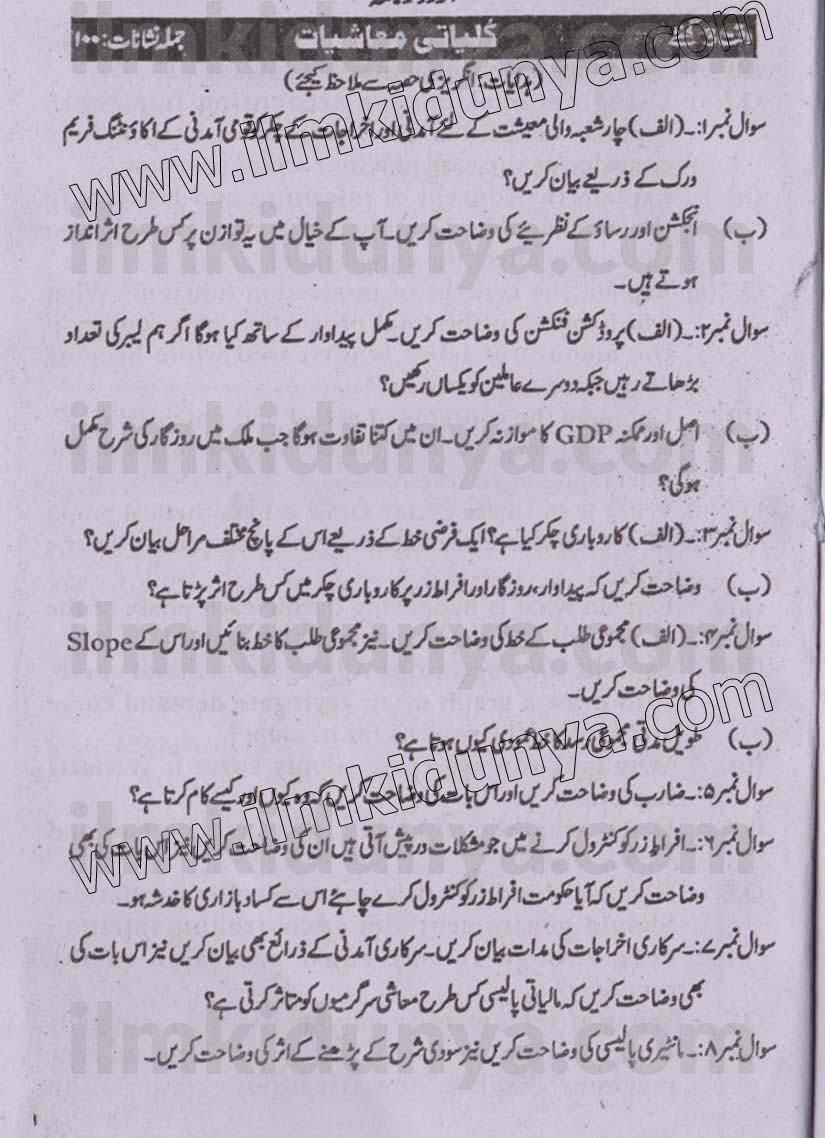 کلیاتی معاشیات جملہ نشانات: ۱۰۰
(ہدایات: انگریزی حصہ سے ملاحظہ کیجئے)
سوال نمبر۱:۔ (الف) چار شعبہ والی معیشت کے لئے آمدنی اور اخراجات کے چکر کو قومی آمدنی کے اکاؤنٹنگ فریم
ورک کے ذریعے بیان کریں؟
(ب) انجکشن اور رساؤ کے نظریئے کی وضاحت کریں۔ آپ کے خیال میں یہ توازن پر کس طرح اثر انداز
ہوتے ہیں۔
سوال نمبر۲:۔ (الف) پروڈکشن فنکشن کی وضاحت کریں۔ مکمل پیداوار کے ساتھ کیا ہوگا اگر ہم لیبر کی تعداد
بڑھاتے رہیں جبکہ دوسرے عاملین کو یکساں رکھیں؟
(ب) اصل اور ممکنہ GDP کا موازنہ کریں۔ ان میں کتنا تفاوت ہوگا جب ملک میں روزگار کی شرح مکمل
ہوگی؟
سوال نمبر۳:۔ (الف) کاروباری چکر کیا ہے؟ ایک فرضی خط کے ذریعے اس کے پانچ مختلف مراحل بیان کریں؟
(ب) وضاحت کریں کہ پیداوار، روزگار اور افراط زر پر کاروباری چکر میں کس طرح اثر پڑتا ہے؟
سوال نمبر۴:۔ (الف) مجموعی طلب کے خط کی وضاحت کریں۔ نیز مجموعی طلب کا خط بنائیں اور اس کے Slope
کی وضاحت کریں۔
(ب) طویل مدتی مجموعی رسد کا خط عمودی کیوں ہوتا ہے؟
سوال نمبر۵:۔ ضارب کی وضاحت کریں اور اس بات کی وضاحت کریں کہ وہ کیوں اور کیسے کام کرتا ہے؟
سوال نمبر۶:۔ افراط زر کو کنٹرول کرنے میں جو مشکلات درپیش آتی ہیں ان کی وضاحت کریں نیز اس بات کی بھی
وضاحت کریں کہ آیا حکومت افراط زر کو کنٹرول کرے چاہئے اس سے کساد بازاری کا خدشہ ہو۔
سوال نمبر۷:۔ سرکاری اخراجات کی مدات بیان کریں۔ سرکاری آمدنی کے ذرائع بھی بیان کریں نیز اس بات کی
بھی وضاحت کریں کہ مالیاتی پالیسی کس طرح معاشی سرگرمیوں کو متاثر کرتی ہے؟
سوال نمبر۸:۔ مانٹیری پالیسی کی وضاحت کریں نیز سودی شرح کے بڑھنے کے اثر کی وضاحت کریں۔
۱
www.ilmkidunya.com
www.ilmkidunya.com
ilmkidunya.com
ilmkidunya.com
ilmkidunya.com
ilmkidunya.com
ilmkidunya.com
ilmkidunya.com